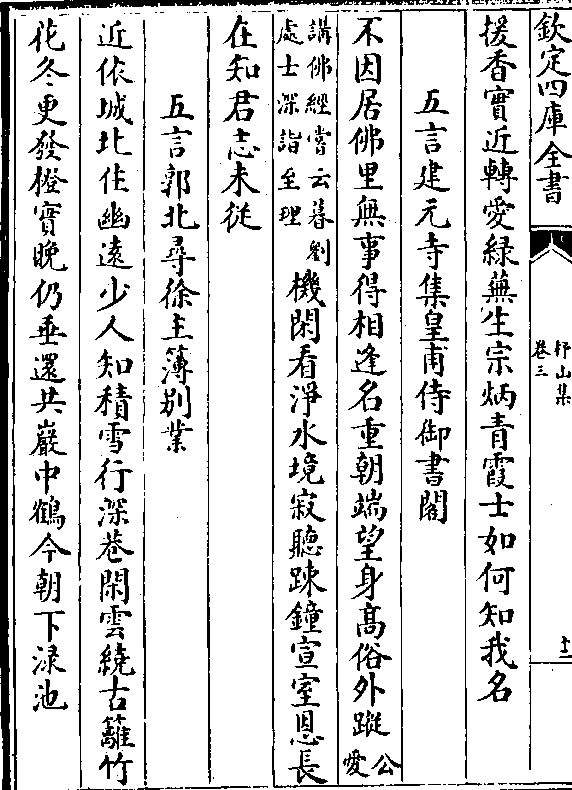 欽定四庫全書
杼山集
卷三
十二
援香實近轉愛緑蕪生宗炳青霞士如何知我名
五言建元寺集皇甫侍御書閣
不因居佛里無事得相逢名重朝端望身髙俗外蹤公愛
講佛經嘗云暮劉
處士深詣至理
機閑看淨水境寂聽踈鐘宣室恩長
在知君志未從
五言郭北尋徐主簿别業
近依城北住幽遠少人知積雪行深巷閑雲繞古籬竹
花冬更發橙實晚仍垂還共巖中鶴今朝下渌池